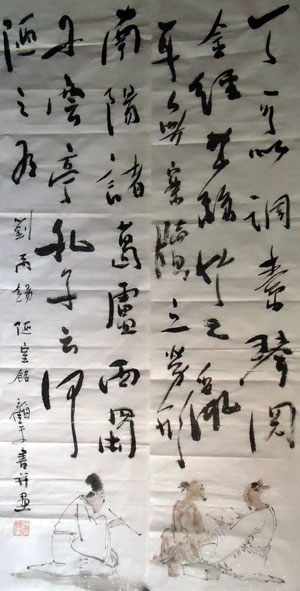 丁可以調素琴閱
金經無絲竹之亂
耳無案牘之勞形
南陽諸葛廬西蜀
子雲亭孔子云何
陋之有
劉禹錫 陋室銘 書并畫